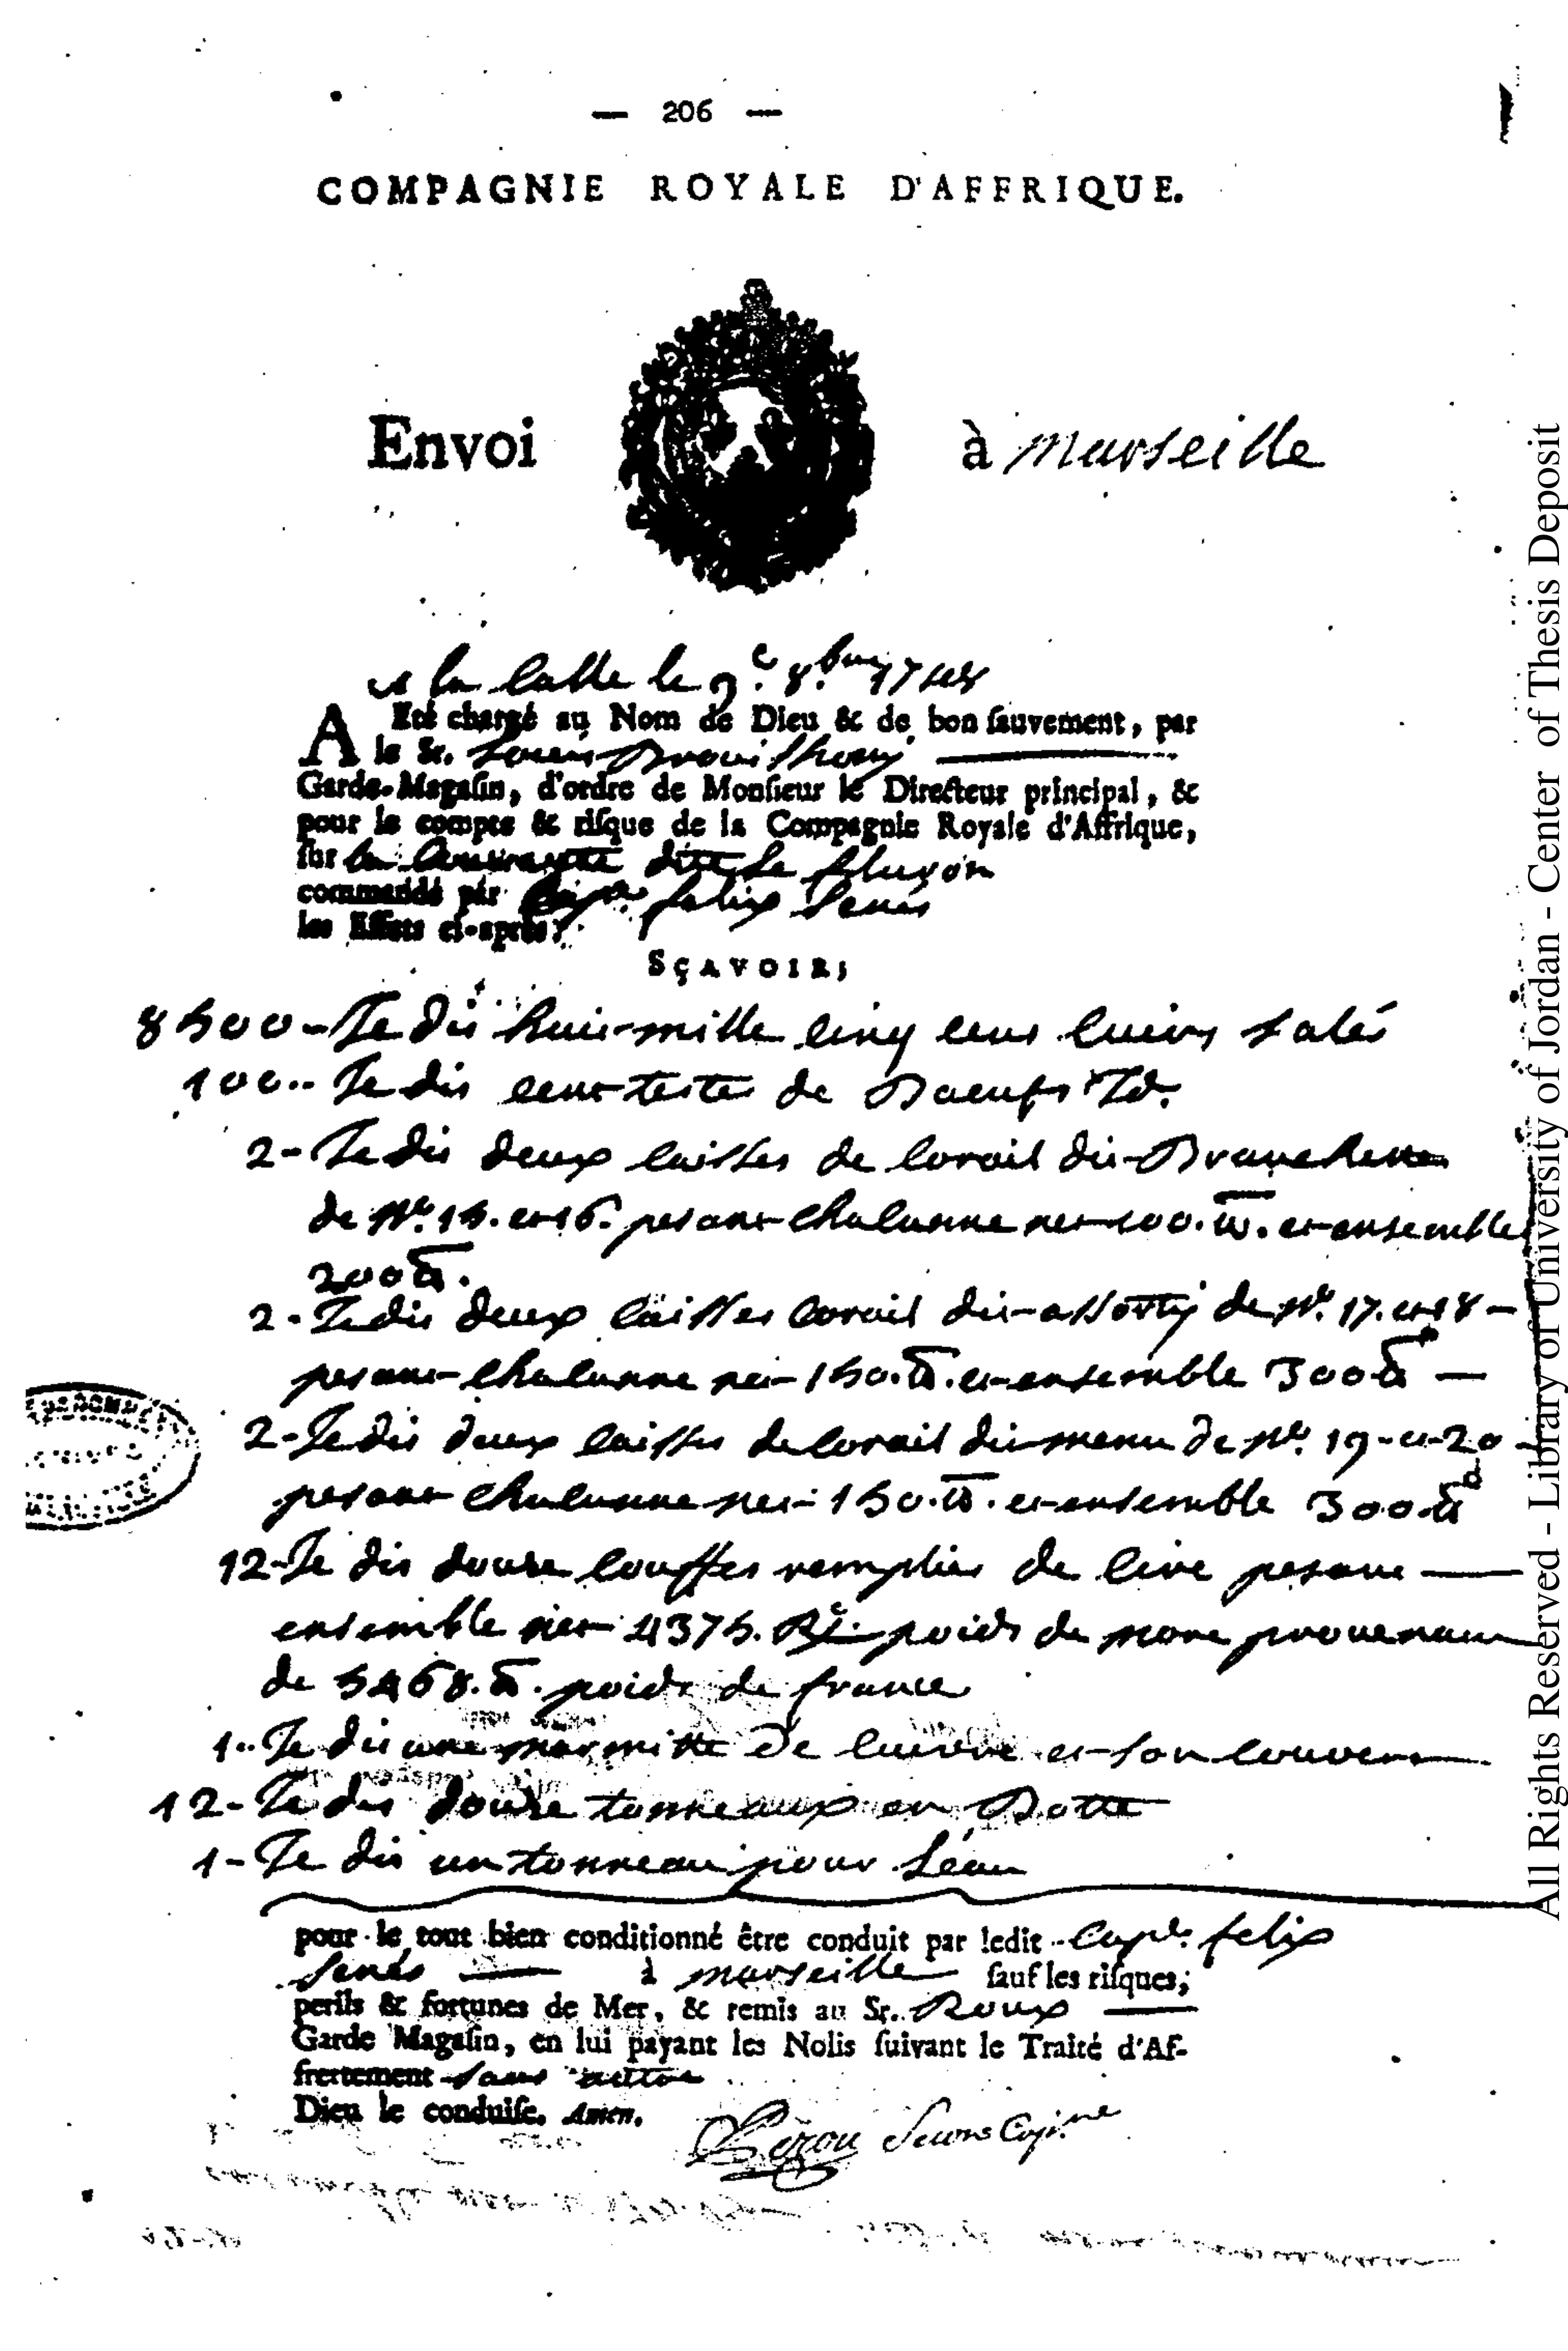 — 206 —
COMPAGNIE ROYALE D'AFFRIQUE.
Envoi
à marseille
a la Calle le 9.e 8.bre 1748
A Eté chargé au Nom de Dieu & de bon sauvement, par
le Sr. Louis
Garde-Magasin, d'ordre de Monsieur le Directeur principal, &
pour le compte & risque de la Compagnie Royale d'Affrique,
sur la dite le
commandé par Cap.ne felix Senés
les Effets ci-après;
SÇAVOIR;
8500 - Je dis huit mille cinq cens cuirs salés
100.. Je dis cent teste de Boeufs Id.
2 - Je dis deux caisses de Corail dit
de N.° 15. et 16. pesant chacunne net 100. et ensemble
200
2 - Je dis deux caisses Corail dit assorty de N.° 17. et 18 -
pesant chacunne net 150. et ensemble 300 —
2 - Je dis deux caisses de Corail dit menu de N.° 19 et 20
pesant chacunne net 150. et ensemble 300
12 - Je dis douze couffes remplies de cire pesant —
ensemble net 4375. poids de provenant
de 5468. poids de france
1.. Je dis une marmitte de cuivre et son couvert
12 - Je dis douze tonneaux en Botte
1 - Je dis un tonneau pour l'éau
pour le tout bien conditionné être conduit par ledit Cap.e felix
Senés — à marseille sauf les risques,
perils & fortunes de Mer, & remis au Sr. Roux —
Garde Magasin, en lui payant les Nolis suivant le Traité d'Af-
frettement sans
Dieu le conduise. Amen.
All Rights Reserved - Library of University of Jordan - Center of Thesis Deposit